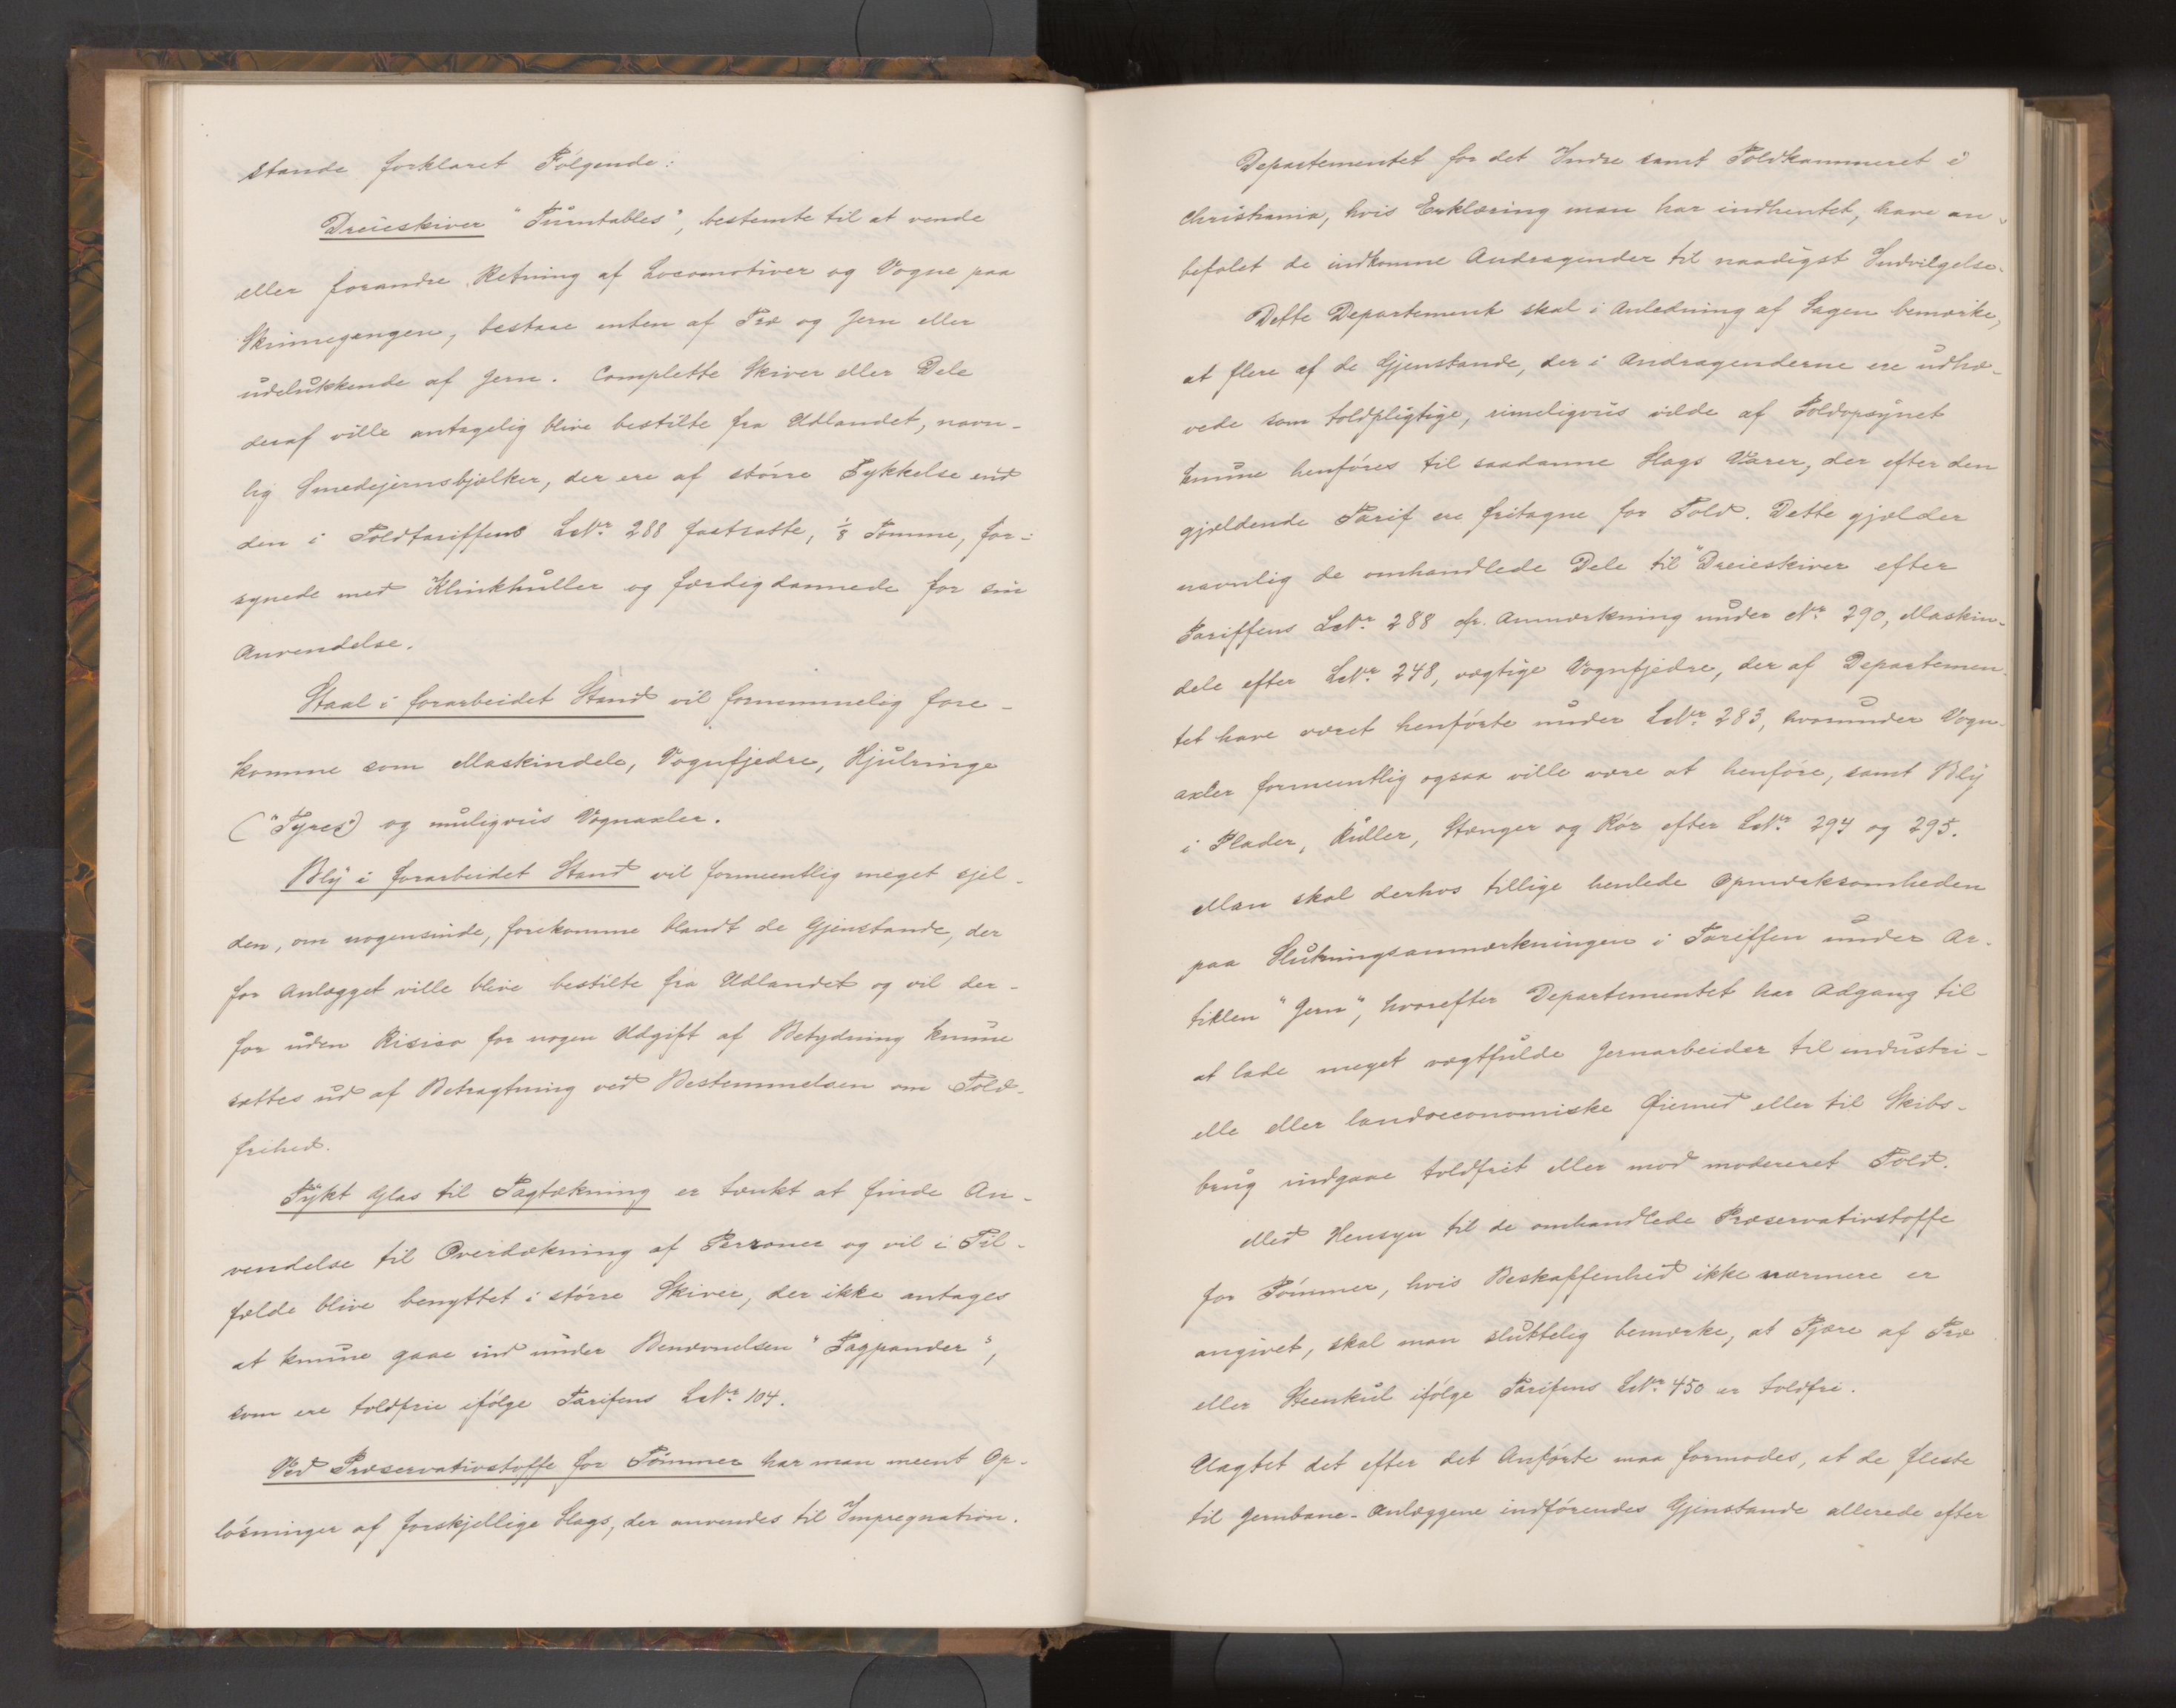 stande forklaret Følgende:
Dreieskiver "Turntables", bestemte til at vende
eller forandre Retning af Locomotiver og Vogne paa
Skinnegangen, bestaae enten af Træ og Jern eller
udelukkende af Jern. Complette Skiver eller Dele
deraf ville antagelig blive bestilte fra Udlandet, navn-
lig Smedejernsbjælker, der ere af større Tykkelse end
den i Toldtariffens LNr. 288 fastsatte, ⅛ Tomme, for-
synede med Klinkhuller og færdigdannede for sin
Anvendelse.
Staal i forarbeidet Stand vil fornemmelig fore-
komme som Maskindele, Vognfjedre, Hjulringe
("Tyres") og muligviis Vognaxler.
Bly i forarbeidet Stand vil formeentlig meget sjel-
den, om nogensinde, forekomme blandt de Gjenstande, der
for Anlægget ville blive bestilte fra Udlandet og vil der-
for uden Risico for nogen Udgift af Betydning kunne
sættes ud af Betragtning ved Bestemmelsen om Told-
frihed.
Tykt Glas til Tagtækning er tænkt at finde An-
vendelse til Overdækning af Perroner og vil i Til-
fælde blive benyttet i større Skiver, der ikke antages
at kunne gaae ind under Benævnelsen "Tagpander",
som ere toldfrie ifølge Tarifens LNr. 104.
Ved Præservativstoffe for Tømmer har man meent Op-
løsninger af forskjellige Slags, der anvendes til Impregnation.
Departementet for det Indre samt Toldkammeret i
Christiania, hvis Erklæring man har indhentet, have an-
befalet de indkomne Andragender til naadigst Indvilgelse.
Dette Departement skal i Anledning af Sagen bemærke,
at flere af de Gjenstande, der i Andragenderne ere udhæ-
vede som toldpligtige, rimeligviis vilde af Toldopsynet
kunne henføres til saadanne Slags Varer, der efter den
gjældende Tarif ere fritagne for Told. Dette gjælder
navnlig de omhandlede Dele til Dreieskiver efter
Tariffens LNr. 288 cfr. Anmærkning under Nr. 290, Maskin-
dele efter LNr. 248, vægtige Vognfjedre, der af Departemen-
tet have været henførte under LNr. 283, hvorunder Vogn-
axler formeentlig ogsaa ville være at henføre, samt Bly
i Plader, Ruller, Stænger og Rør efter LNr. 294 og 295.
Man skal derhos tillige henlede Opmærksomheden
paa Slutningsanmærkningen i Tariffen under Ar-
tiklen "Jern", hvorefter Departementet har Adgang til
at lade meget vægtfulde Jernarbeider til industri-
elle eller landoeconomiske Øiemed eller til Skibs-
brug indgaae toldfrit eller mod modereret Told.
Med Hensyn til de omhandlede Præservativstoffe
for Tømmer, hvis Beskaffenhed ikke nærmere er
angivet, skal man sluttelig bemærke, at Tjære af Træ
eller Steenkul ifølge Tarifens LNr. 450 er toldfri.
Uagtet det efter det Anførte maa formodes, at de fleste
til Jernbane-Anlæggene indførendes Gjenstande allerede efter